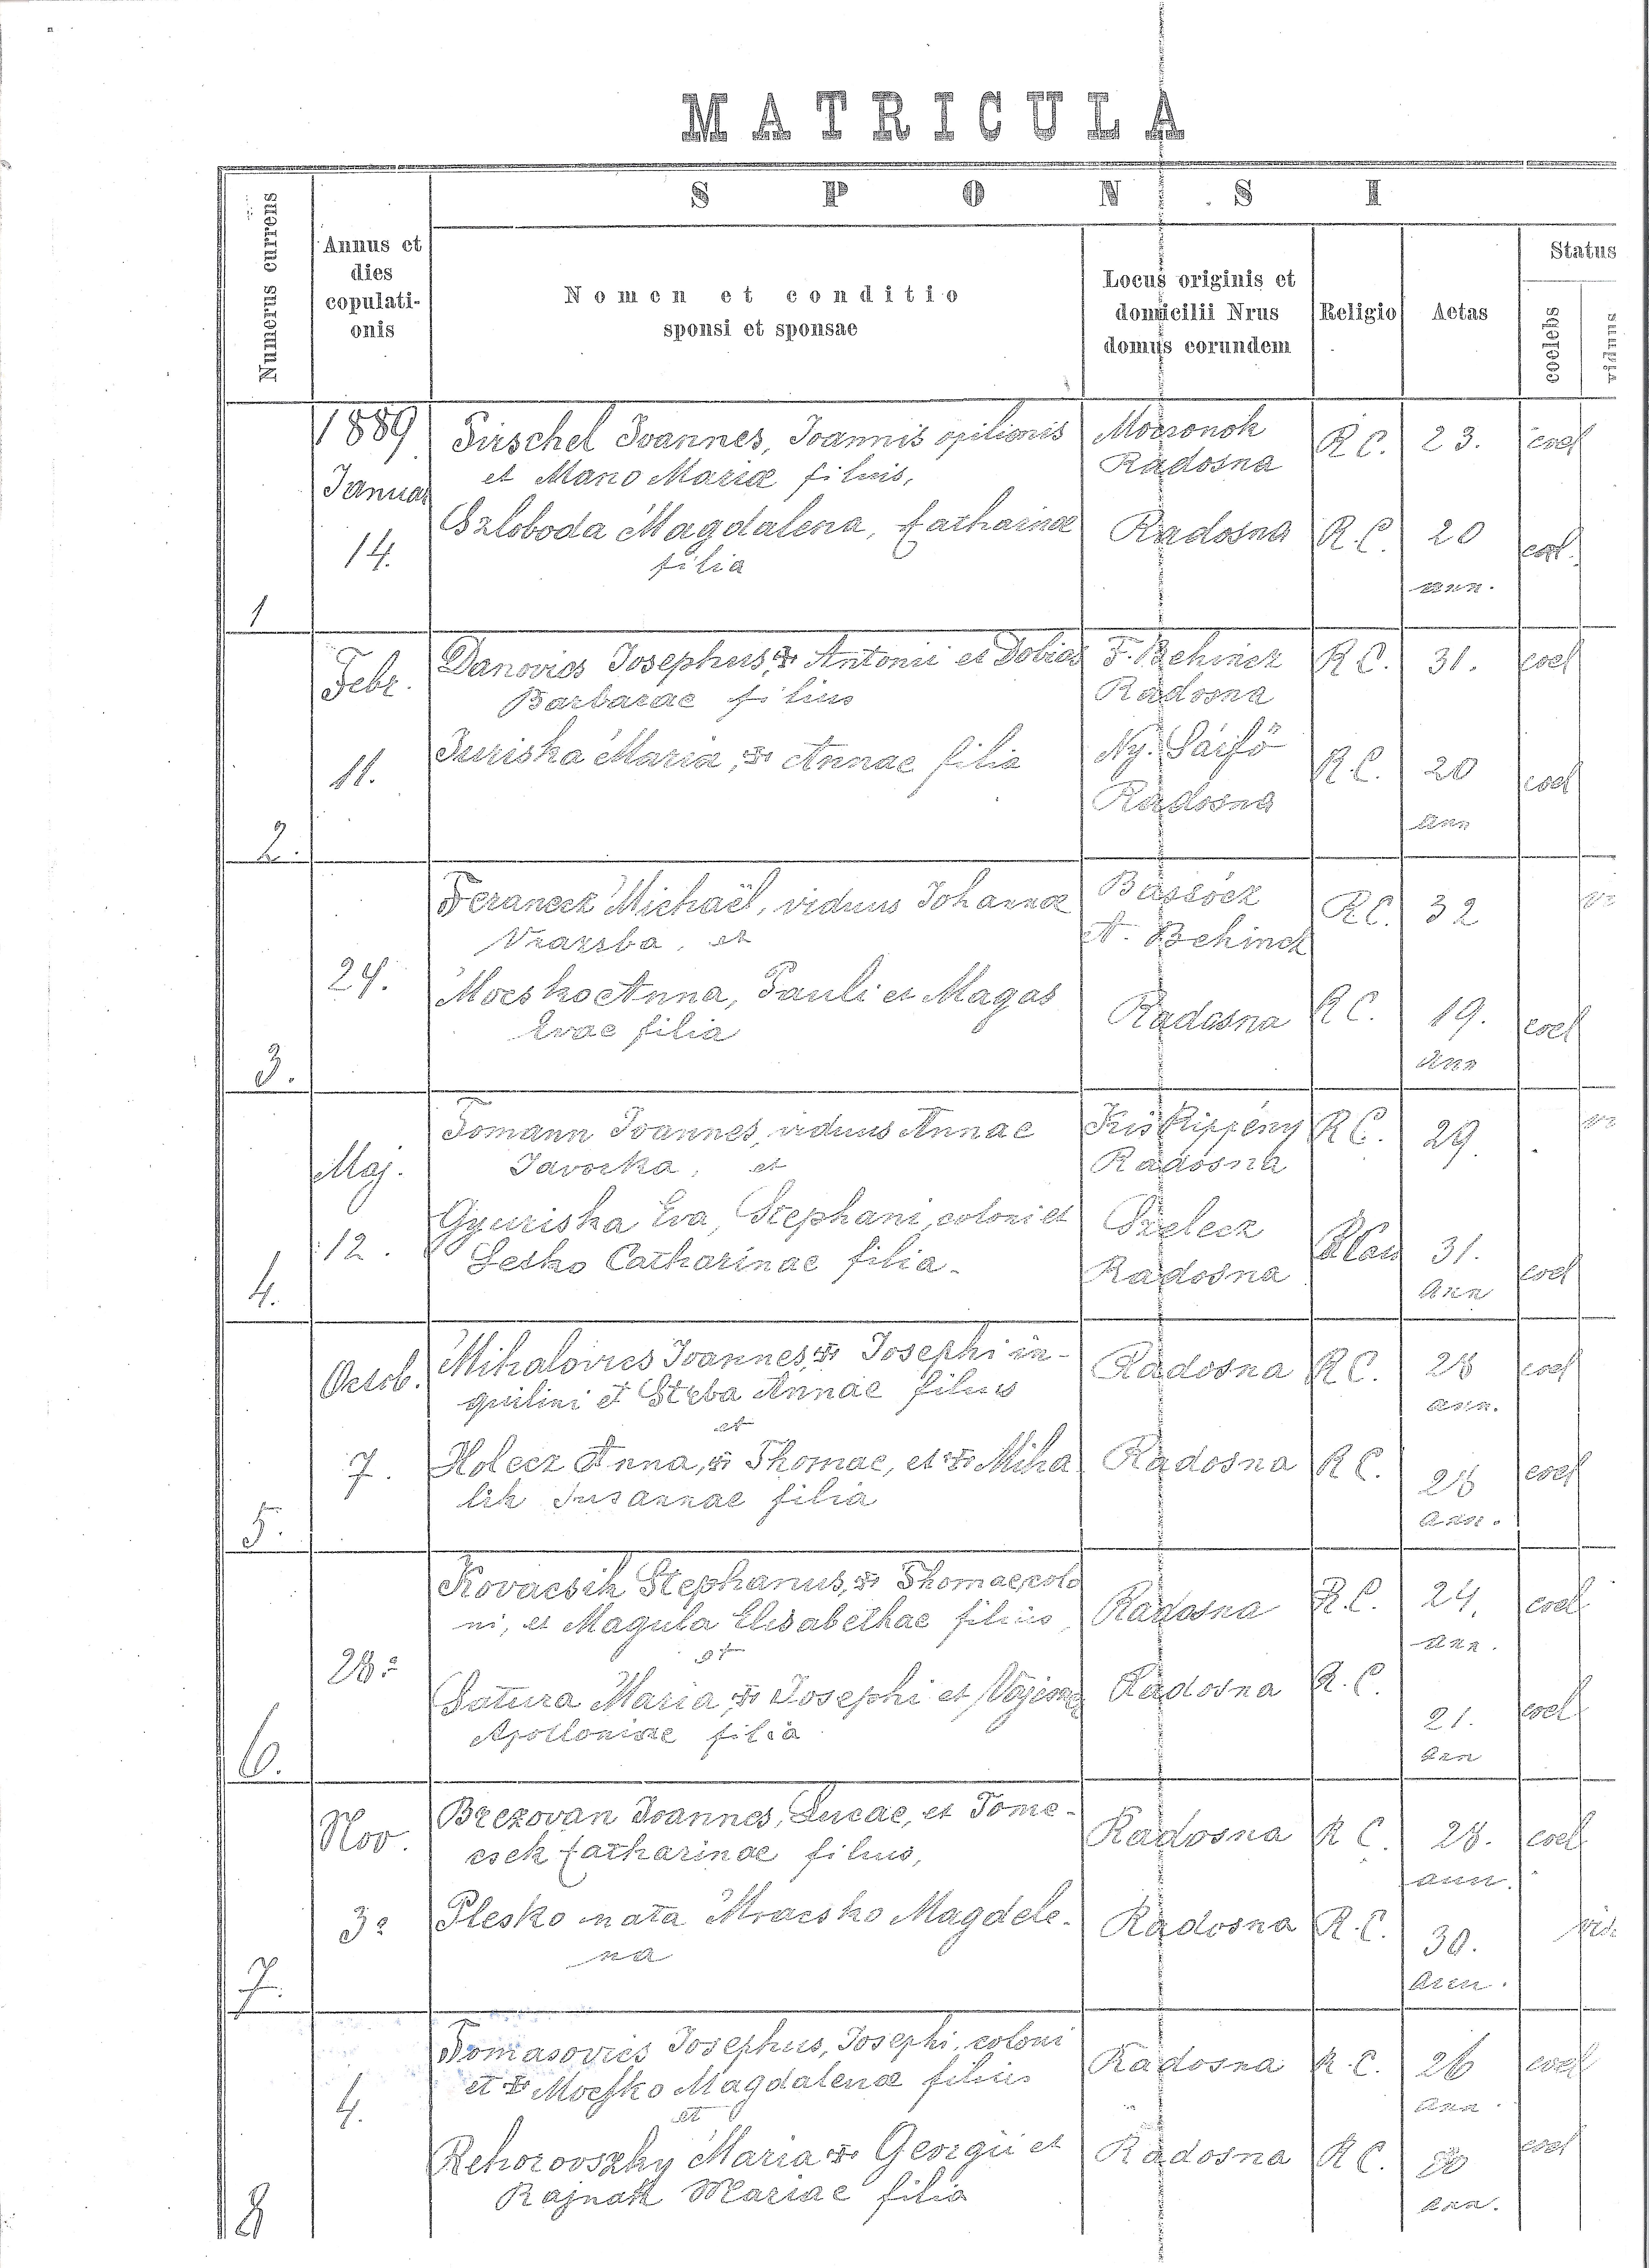 MATRICULA
SPONSI
Numerus currens
Annus et
dies
copulati-
onis
Nomen et conditio
sponsi et sponsae
Locus originis et
domicilii Nrus
domus eorundem
Religio
Aetas
Status
coelebs
viduus
1889
Januar
14.
1
Pirschel Joannes, Joannis opilionis
et Mano Mariæ filius,
Szloboda Magdalena, Catharinæ
filia
Mocsonok
Radosna
Radosna
R C.
R.C.
23.
20
ann.
coel
coel.
Febr.
11.
2.
Danovics Josephus, Antonii et Tobias
Barbarae filius
Juriska Maria, Annae filia
F. Behincz
Radosna
Ny. Sárfő
Radosna
R C.
R.C.
31.
20
Ann
coel
coel
24.
3.
Ferancz Michaël, viduus Johannæ
Vrazsba, et
Mocsko Anna, Pauli et Magas
Evae filia
Bassócz
A. Behincz
Radosna
R.C.
R C.
32
19.
Ann
coel
Maj.
12.
4.
Tomann Joannes, viduus Annae
Javorka, et
Gyuriska Eva, Stephani, coloni et
Lesko Catharinae filia.
Kis Rippény
Radosna
Szelecz
Radosna
R C.
29.
31.
Ann
coel
Octob.
7.
5.
Mihalovics Joannes, Josephi in-
quilini et Streba Annae filius
et
Holecz Anna, Thomae, et Miha
lik Susannae filia
Radosna
Radosna
R C.
R C.
28
ann.
26
Ann.
coel
coel
28.
6.
Kovacsik Stephanus, Thomae, colo
ni, et Magula Elisabethae filius,
et
Satura Maria, Josephi et
Apolloniae filia
Radosna
Radosna
R.C.
R.C.
24.
Ann.
21.
Ann
coel
coel
Nov.
3.
7.
Brezovan Joannes, Lucae, et Tome-
csek Catharinae filius,
Plesko nata Mracsko Magdele-
na
Radosna
Radosna
R C.
R.C.
28.
ann.
30.
Ann.
coel
vid.
4.
8
Tomasovics Josephus, Josephi, coloni
et Mocsko Magdalenæ filius
et
Rehorovszky Maria Georgii et
Rajnak Mariae filia
Radosna
Radosna
R.C.
R C.
26
Ann.
20
Ann.
coel
coel